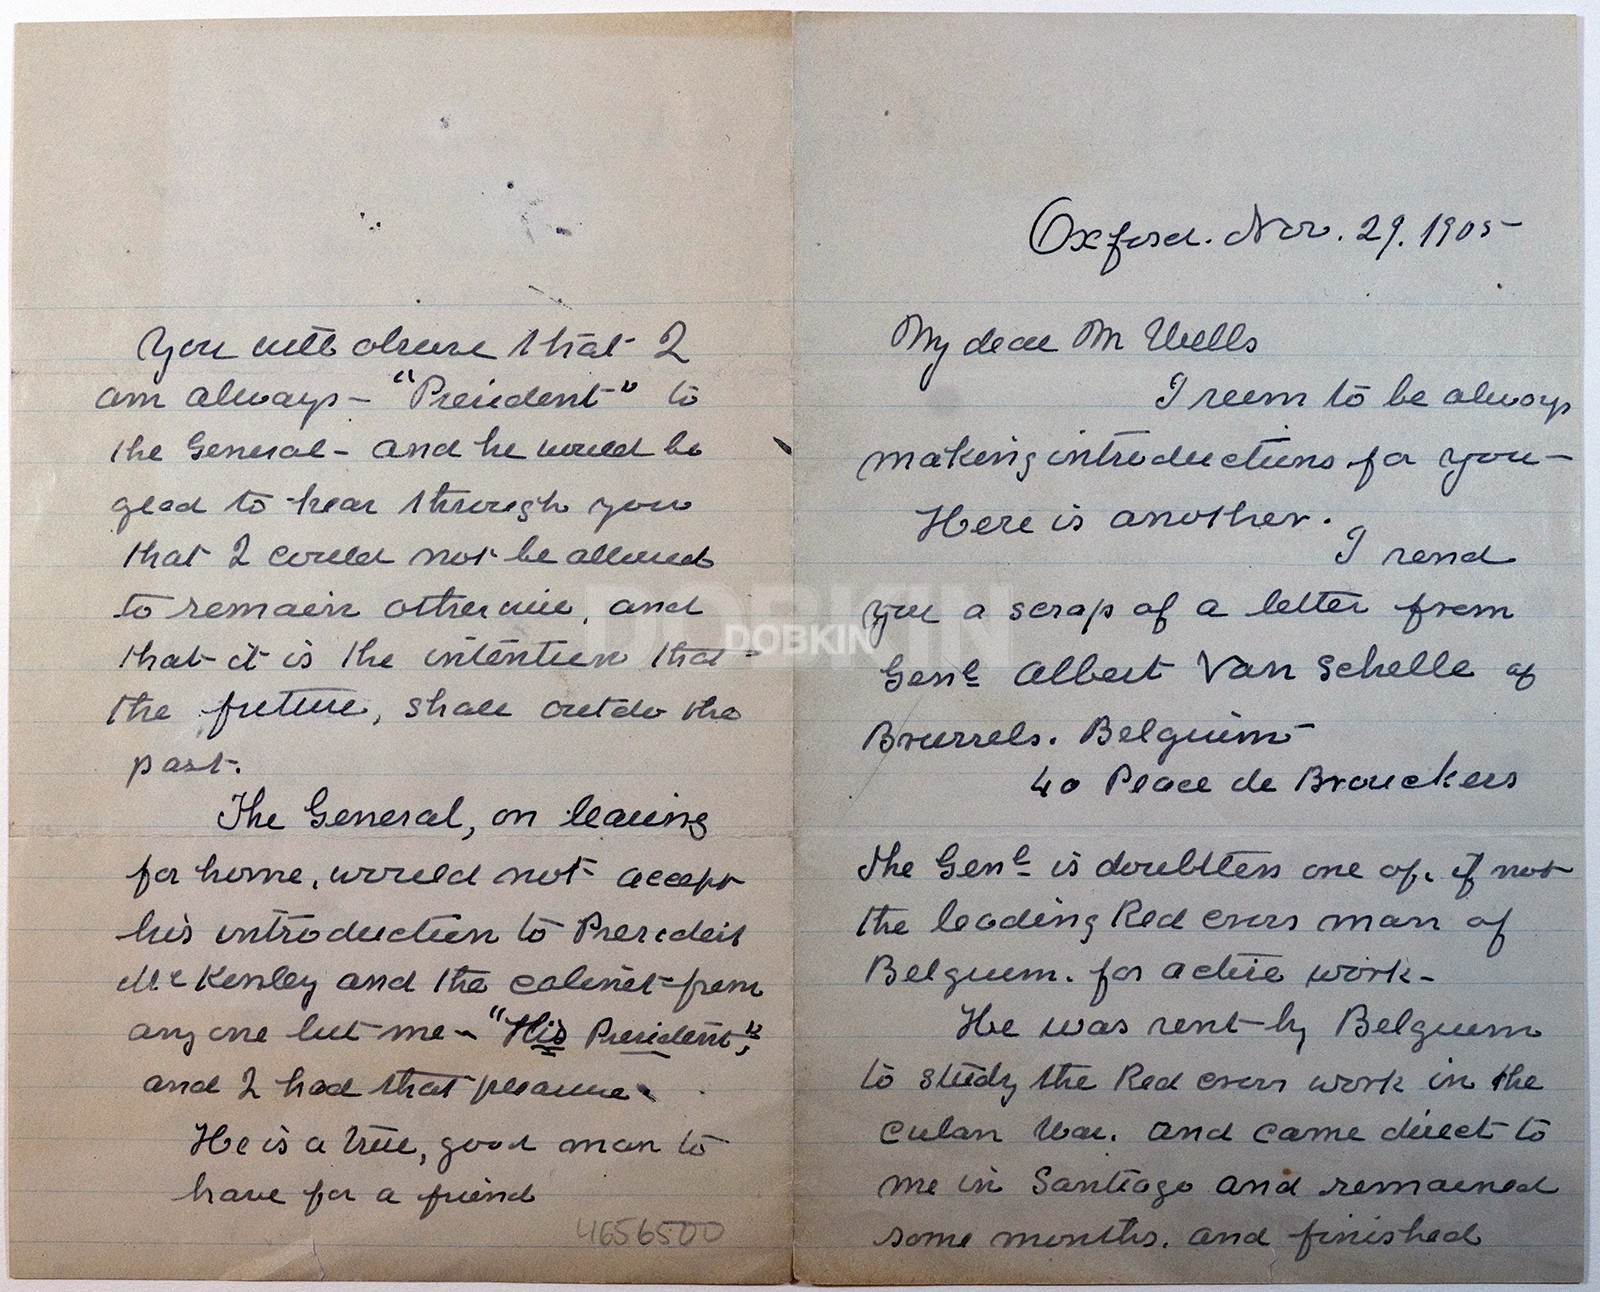 Oxford. Nov. 29. 1905
My dear Mr Wells
I seem to be always
making introductions for you —
Here is another.
I send
you a scrap of a letter from
Genl. Albert Van Schelle of
Brussels. Belguim —
40 Place de Brouckers
The Genl. is doubtless one of, if not
the leading Red cross man of
Belguim. for active work —
He was sent by Belguim
to study the Red cross work in the
cuban War. and came direct to
me in Santiago and remained
some months. and finished
You will observe that I
am always — "President" to
the General — and he would be
glad to hear through you
that I could not be allowed
to remain otherwise, and
that it is the intention that
the future, shall outdo the
past.
The General, on leaving
for home, would not accept
his introduction to President
McKenley and the cabinet from
any one but me — "His President",
and I had that pleasure.
He is a true, good man to
have for a friend
4656500
DOBKIN
DOBKIN